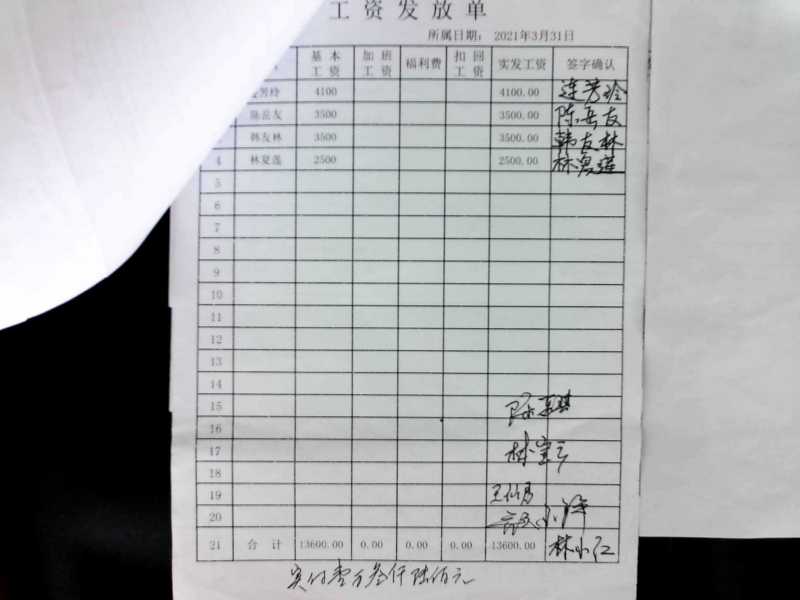 工资发放单
所属日期: 2021年3月31日
基本工资 加班工资 福利费 扣回工资 实发工资 签字确认
芳玲 4100 4100.00 连芳玲
陈岳友 3500 3500.00 陈岳友
韩友林 3500 3500.00 韩友林
4 林夏莲 2500 2500.00 林夏莲
5
6
7
8
9
10
11
12
13
14
15
16
17
18
19
20
21 合计 13600.00 0.00 0.00 0.00 13600.00 林小仁
实付壹万叁仟陆佰元